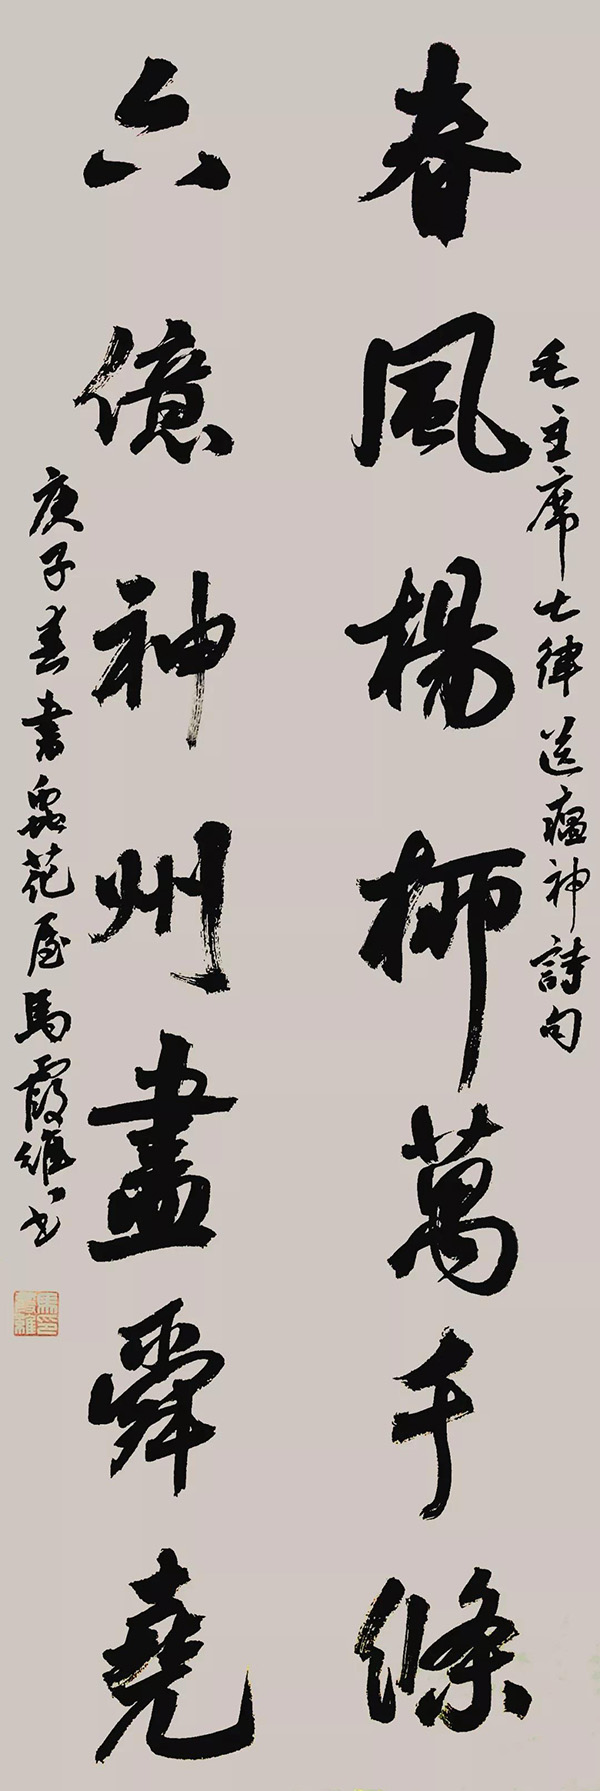 毛主席七律送瘟神詩句
春風楊柳萬千條
六億神州盡舜堯
庚子春書花屋馬霞維書